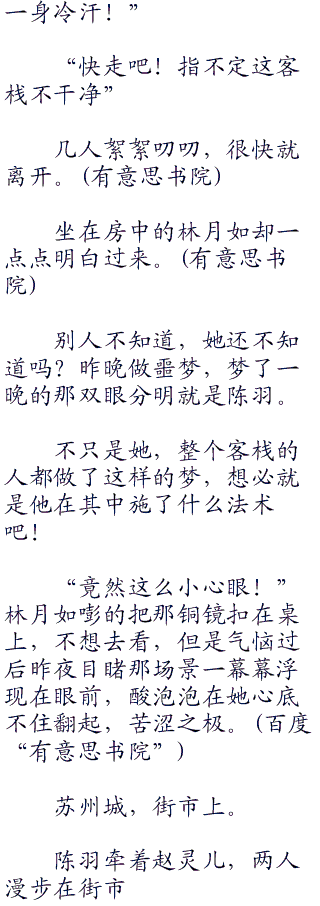 一身冷汗！”
“快走吧！指不定这客
栈不干净”
几人絮絮叨叨，很快就
离开。(有意思书院)
坐在房中的林月如却一
点点明白过来。(有意思书
院)
别人不知道，她还不知
道吗？昨晚做噩梦，梦了一
晚的那双眼分明就是陈羽。
不只是她，整个客栈的
人都做了这样的梦，想必就
是他在其中施了什么法术
吧！
“竟然这么小心眼！”
林月如嘭的把那铜镜扣在桌
上，不想去看，但是气恼过
后昨夜目睹那场景一幕幕浮
现在眼前，酸泡泡在她心底
不住翻起，苦涩之极。(百度
“有意思书院”)
苏州城，街市上。
陈羽牵着赵灵儿，两人
漫步在街市